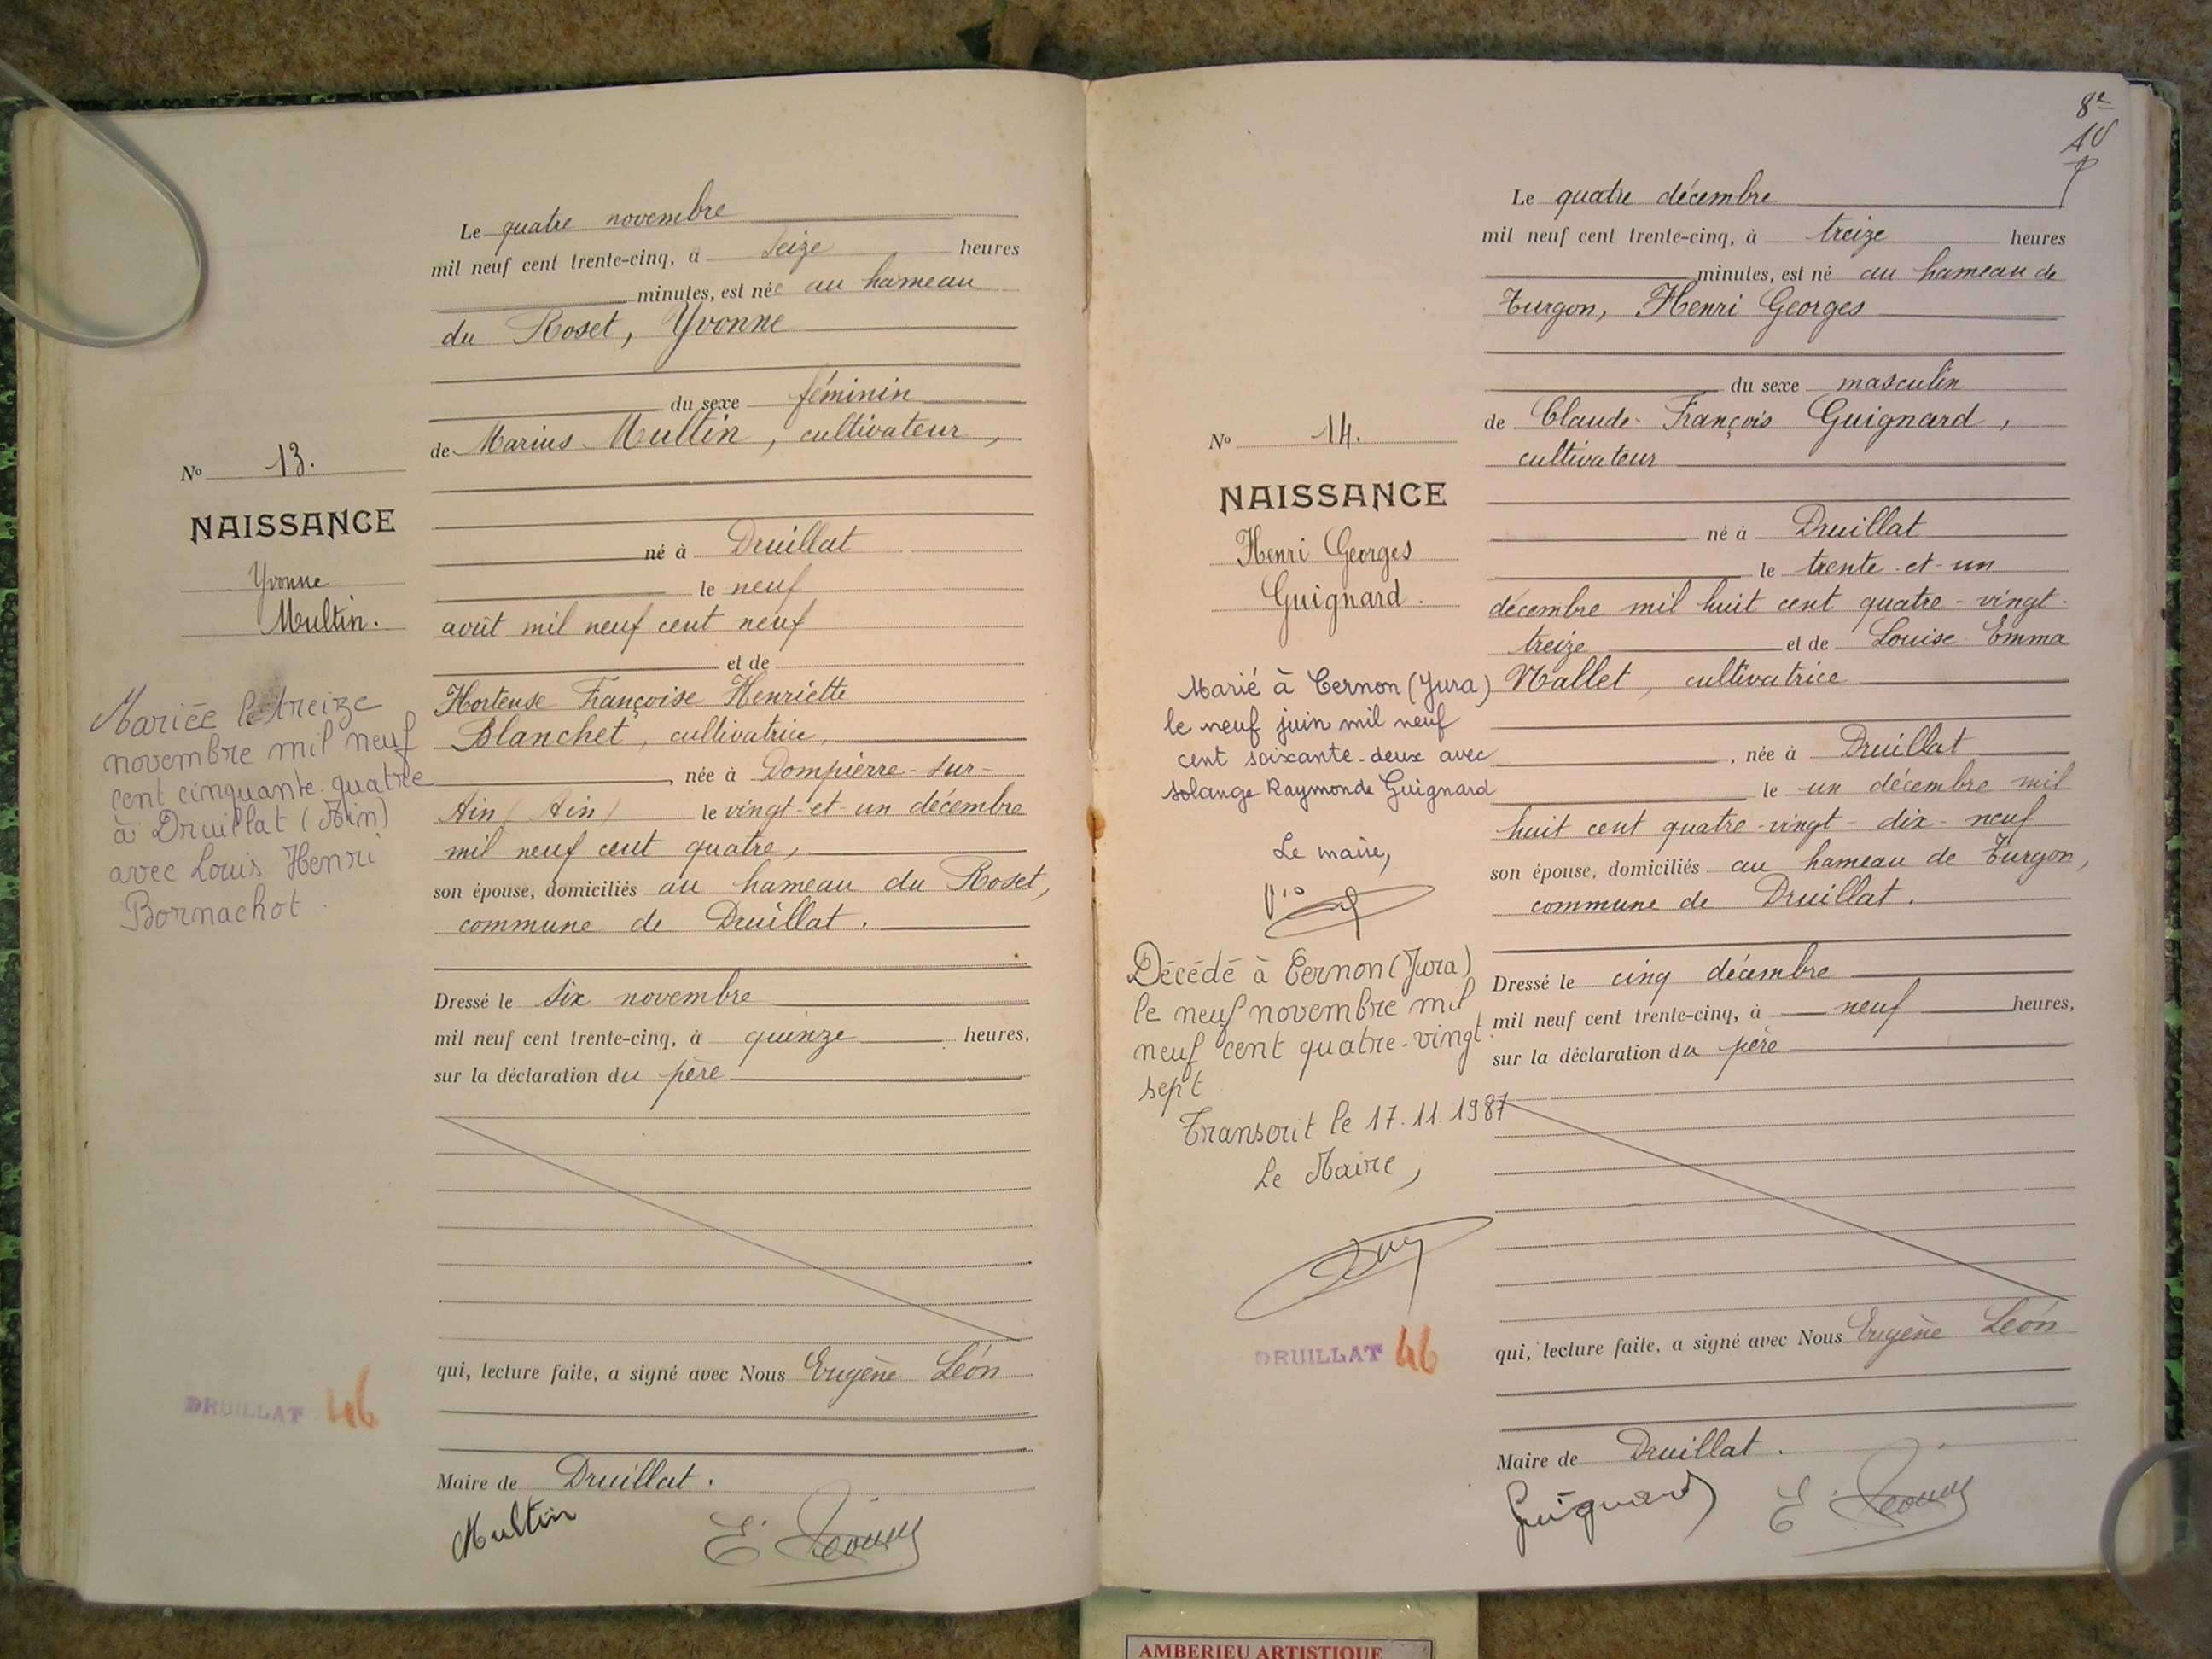 Le quatre novembre
mil neuf cent trente-cinq, à seize heures
minutes, est née au hameau
du Roset, Yvonne
du sexe féminin
de Marius Multin, cultivateur,
né à Druillat
le neuf
août mil neuf cent neuf
et de
Hortense Françoise Henriette
Blanchet, cultivatrice,
née à Dompierre-sur-
Ain (Ain) le vingt-et-un décembre
mil neuf cent quatre,
son épouse, domiciliés au hameau du Roset,
commune de Druillat.
Dressé le six novembre
mil neuf cent trente-cinq, à quinze heures,
sur la déclaration du père
qui, lecture faite, a signé avec Nous Eugène Léon
Maire de Druillat.
Multin
No 13.
NAISSANCE
Yvonne
Multin.
Mariée le treize
novembre mil neuf
cent cinquante-quatre
à Druillat (Ain)
avec Louis Henri
Bornachot.
DRUILLAT 46
8e
Le quatre décembre
mil neuf cent trente-cinq, à treize heures
minutes, est né au hameau de
Turgon, Henri Georges
du sexe masculin
de Claude-François Guignard,
cultivateur
né à Druillat
le trente-et-un
décembre mil huit cent quatre-vingt-
treize et de Louise Emma
Mallet, cultivatrice
, née à Druillat
le un décembre mil
huit cent quatre-vingt-dix-neuf
son épouse, domiciliés au hameau de Turgon,
commune de Druillat.
Dressé le cinq décembre
mil neuf cent trente-cinq, à neuf heures,
sur la déclaration du père
qui, lecture faite, a signé avec Nous Eugène Léon
Maire de Druillat.
Guignard
No 14.
NAISSANCE
Henri Georges
Guignard.
Marié à Cernon (Jura)
le neuf juin mil neuf
cent soixante-deux avec
solange Raymonde Guignard
Le maire,
Décédé à Cernon (Jura)
le neuf novembre mil
neuf cent quatre-vingt
sept
Transcrit le 17.11.1987
Le Maire,
DRUILLAT 46
AMBERIEU ARTISTIQUE